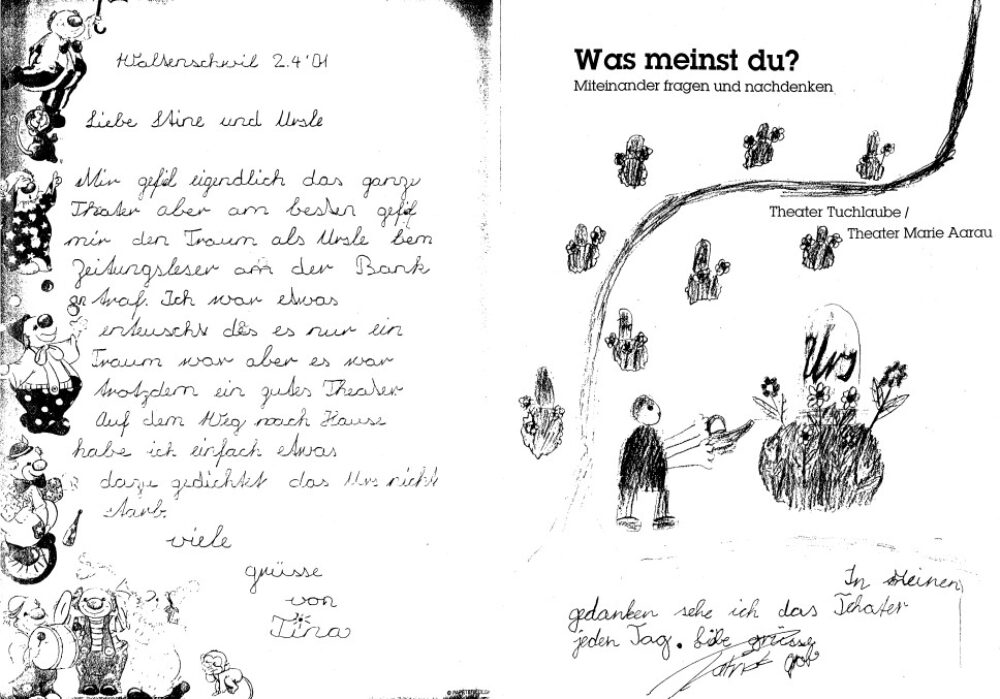 Waltenschwil 2.4'01
Liebe Stine und Ursle
Mir gefil eigendlich das ganze
Theater aber am besten gefil
mir den Traum als Ursle bem
Zeitungsleser am der Bank
traf. Ich war etwas
enteuscht das es nur ein
Traum war aber es war
trotzdem ein gutes Theater
Auf dem Weg nach Hause
habe ich einfach etwas
dazu gedichtet das Urs nicht
starb.
viele
grüsse
von
Tina
Was meinst du?
Miteinander fragen und nachdenken
Theater Tuchlaube /
Theater Marie Aarau
Urs
In meinen
gedanken sehe ich das Tehater
jeden Tag. grüsse